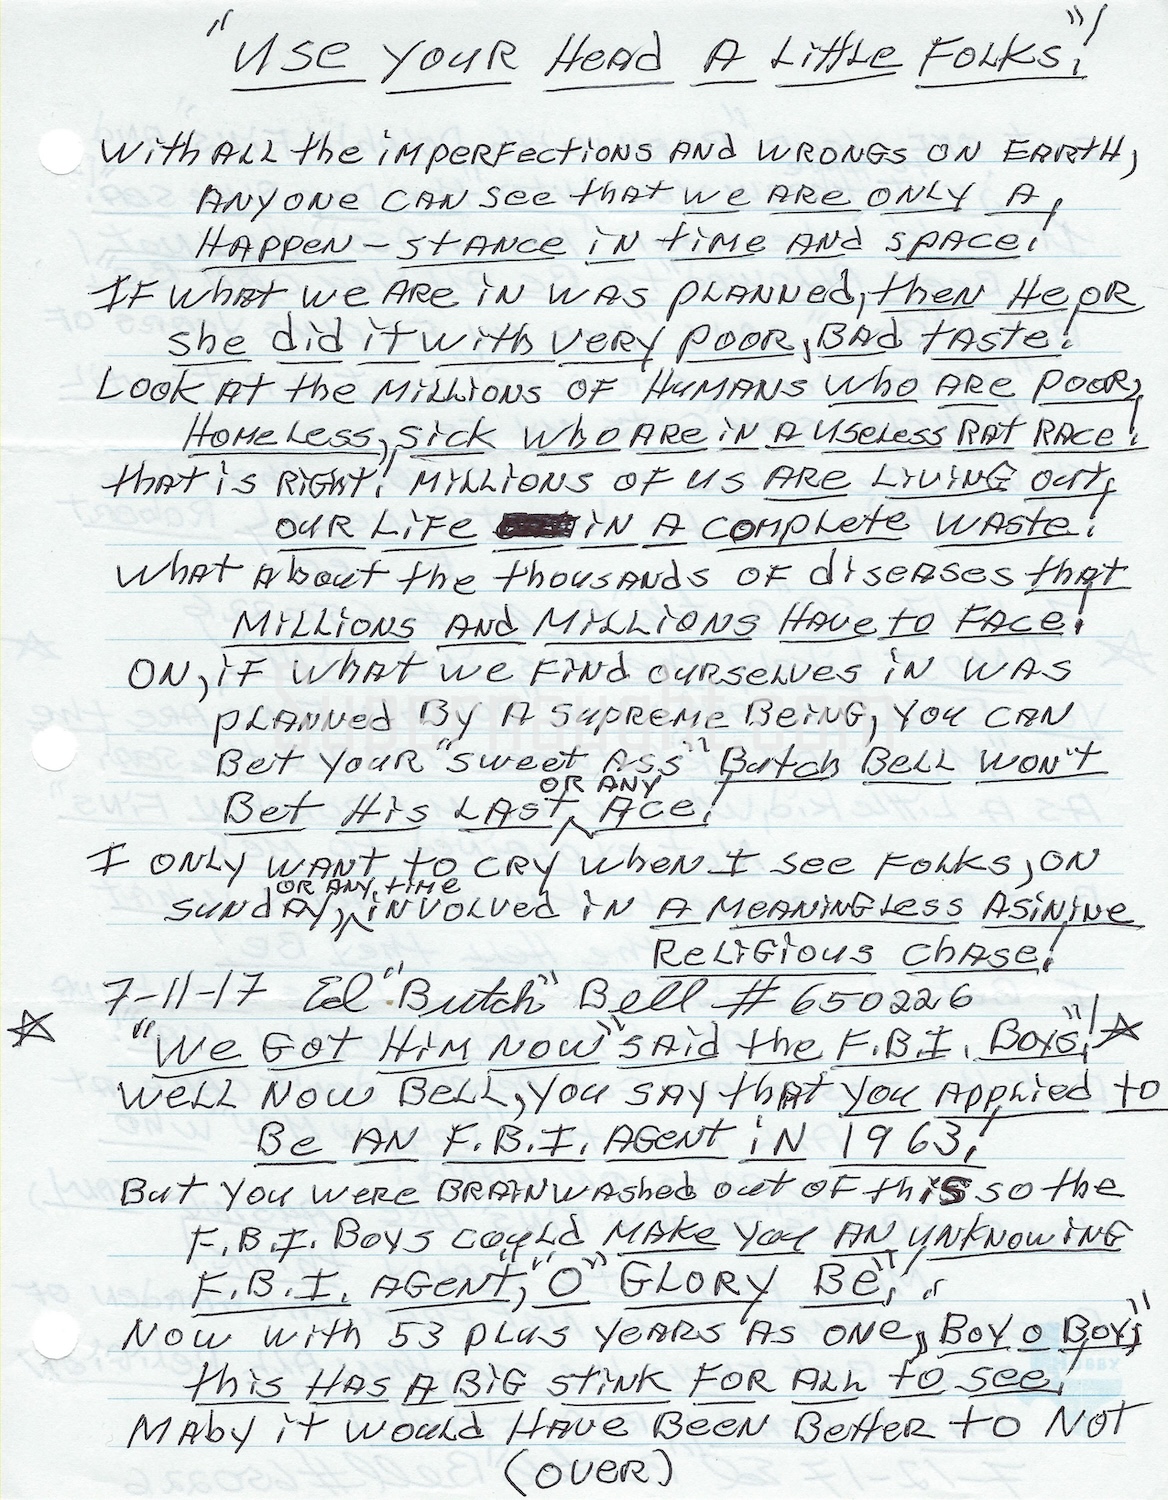 "Use Your Head A Little Folks"!
With ALL the imperfections AND WRONGS ON EARTH,
ANYONE CAN see that we ARE ONLY A,
HAPPEN - STANCE in time AND space!
If what we ARE in WAS PLANNED, then He or
she did it with very poor, BAD taste!
Look At the MiLLiONS OF HUMANS who ARE POOR,
HOMELess, sick who ARE IN A useless RAT RACE!
that is RIGHT! MiLLiONS OF us ARE LiviNG out,
OUR LiFe in A complete WASTE!
What About the thousANds OF diseases that
MiLLiONS AND MiLLiONS HAVE to FACE!
ON, if WHAT we FiNd ourselves in WAS
PLANNED By A Supreme BeiNG, you CAN
Bet YouR "sweet Ass" Butch BELL WON't
OR ANY
Bet His LAST, ACE!
I ONLY WANT to CRY when I see FOLKS, ON
OR ANY time
SUNDAY, iNVOLVed iN A MeANiNGLess AsiNiNe
ReLiGious CHASe!
7-11-17 Ed "Butch" Bell # 650226
☆ "We Got Him Now" SAid the F.B.I. Boys"! ☆
WeLL Now BeLL, you SAY that you Applied to
Be AN F.B.I. AGent iN 1963!
But you were BRAiNwAshed out OF this so the
F.B.I. Boys could MAKE you AN UNKNOWiNG
F.B.I. AGeNt, "O" GLORY Be"!
Now with 53 plus yeARs As one, Boy o Boy,"
this HAS A BiG stiNK FOR ALL to see!
MAby it WouLd HAVE BeeN Better to Not
(OVER)